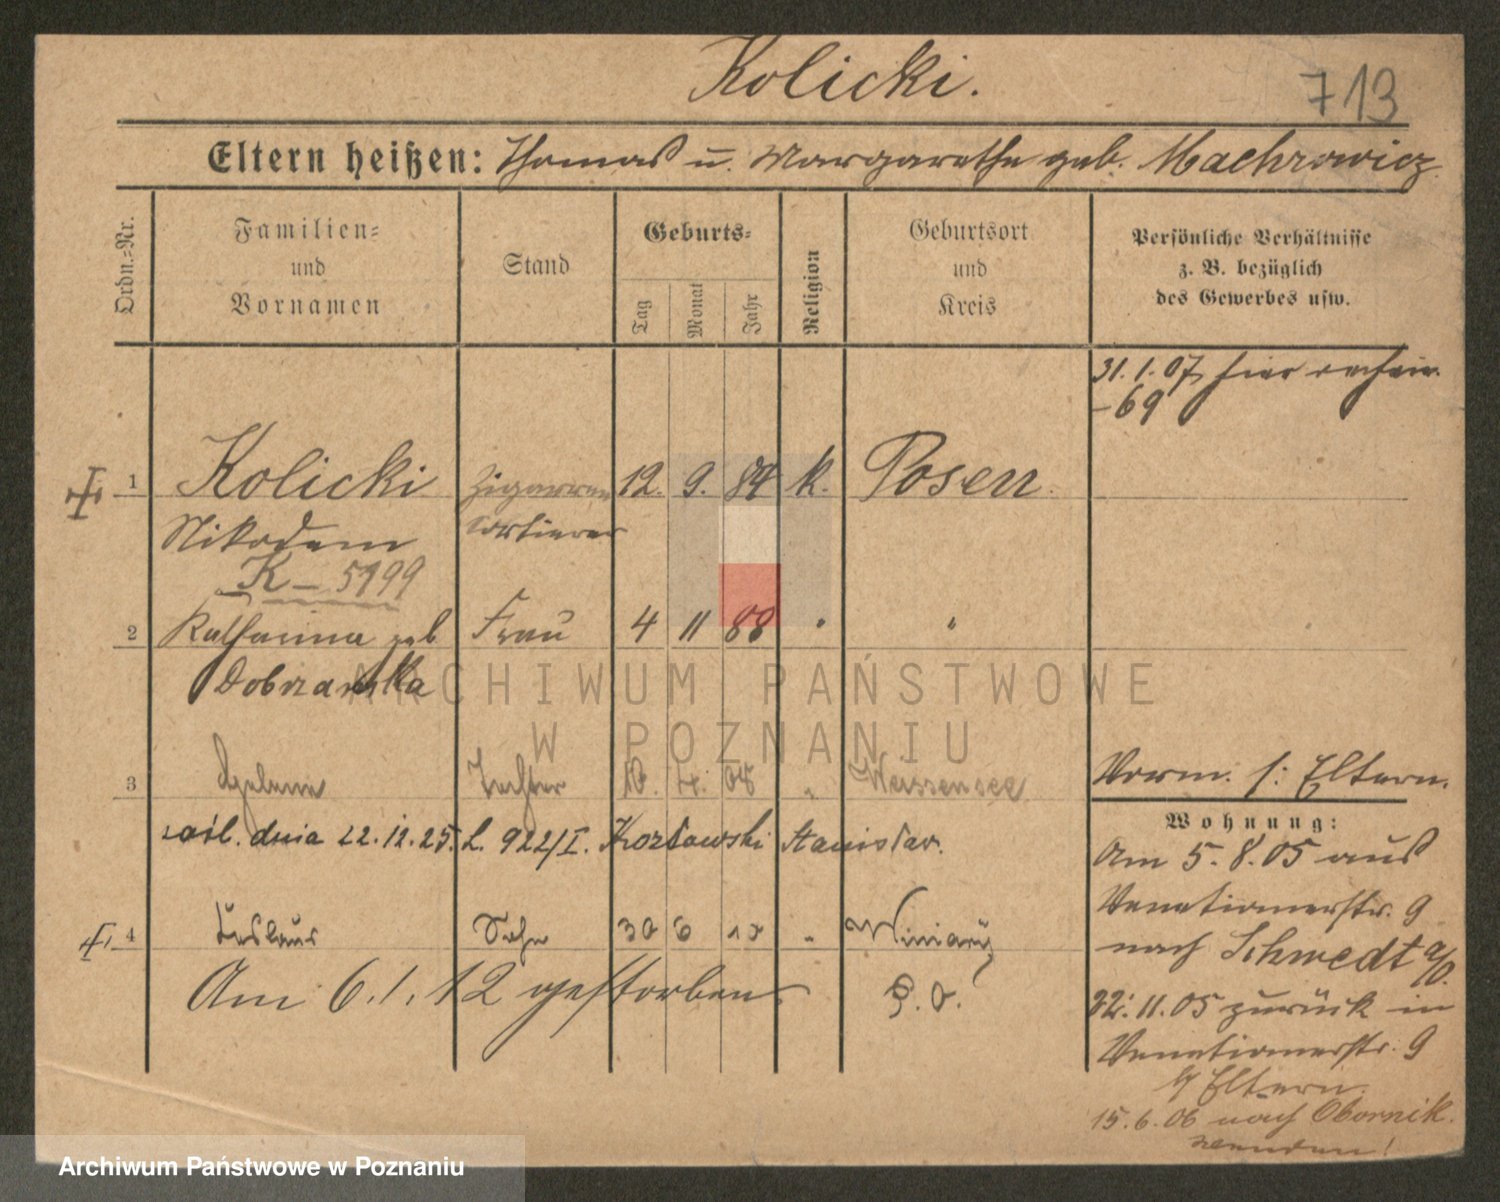 Kolicki.
713
Eltern heißen: Thomas u. Margarethe geb. Machrowicz
Ordn.-Nr.
Familien-
und
Vornamen
Stand
Geburts-
Tag
Monat
Jahr
Religion
Geburtsort
und
Kreis
Persönliche Verhältnisse
z. B. bezüglich
des Gewerbes usw.
31. 1. 07 hier
-69
1 Kolicki Zigarren 12. 9. 84 k. Posen.
Nikodem sortierer
K - 5199
2 Katharina geb Frau 4 11 88 " "
Dobrzańska
3 Helene Tochter 10. 4. 08 " Weissensee
Vorm. s: Eltern.
zaśl. dnia 22.12.25. L. 922/I. Kozłowski Stanisław.
Wohnung:
Am 5. 8. 05 aus
Venetianerstr. 9
4 Sohn 30 6 " Winiary
nach Schwedt a/O.
Am 6. 1. 12 gestorben P. O.
22. 11. 05 zurück in
Venetianerstr. 9
b/ Eltern.
15. 6. 06 nach Obornik.
wenden!
ARCHIWUM PAŃSTWOWE
W POZNANIU
Archiwum Państwowe w Poznaniu